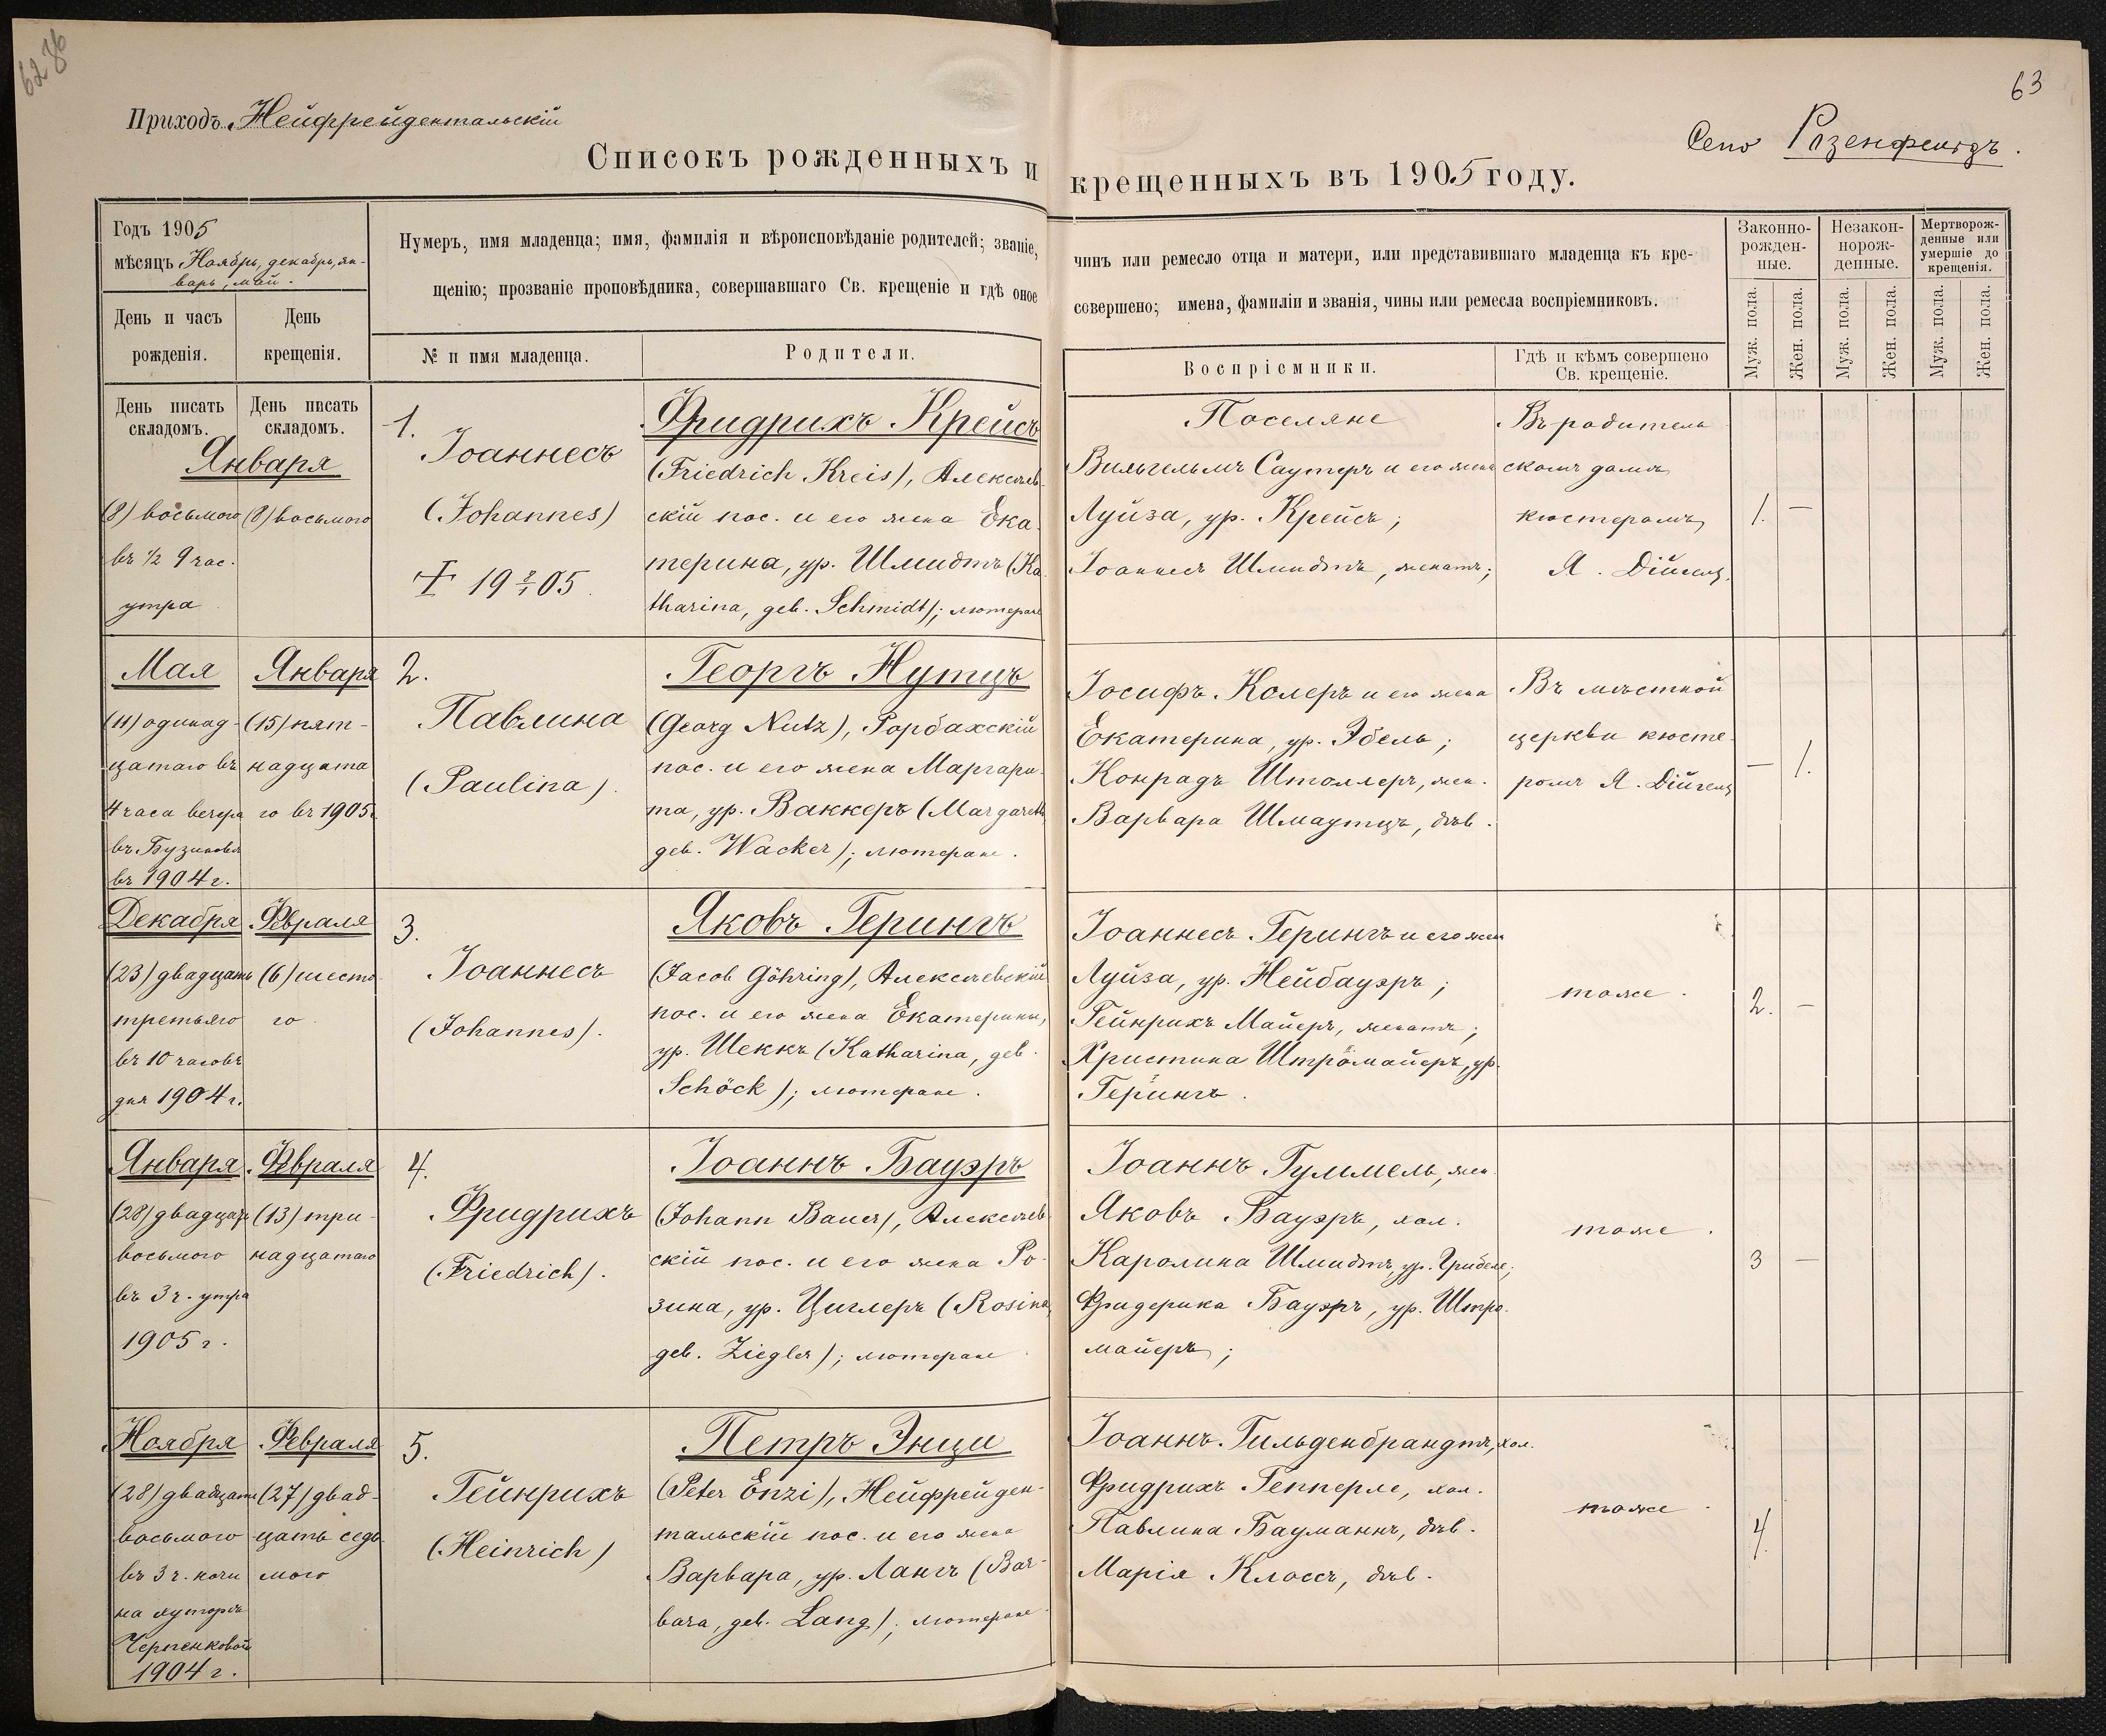 62 об
63
Приходъ Нейфрейдентальскій
Село Розенфельдъ.
Списокъ рожденныхъ и крещенныхъ въ 1905 году.
Годъ 1905
мѣсяцъ Ноябрь, декабрь, ян-
варь, май.
День и часъ
рожденія.
День
крещенія.
Нумеръ, имя младенца; имя, фамилія и вѣроисповѣданіе родителей; званіе,
щенію; прозваніе проповѣдника, совершавшаго Св. крещеніе и гдѣ оное
№ и имя младенца.
Родители.
чинъ или ремесло отца и матери, или представившаго младенца къ кре-
совершено; имена, фамиліи и званія, чины или ремесла воспріемниковъ.
Воспріемники.
Гдѣ и кѣмъ совершено
Св. крещеніе.
Законно-
рожден-
ные.
Незакон-
норож-
денные.
Мертворож-
денные или
умершіе до
крещенія.
Муж. пола.
Жен. пола.
Муж. пола.
Жен. пола.
Муж. пола.
Жен. пола.
День писать
складомъ.
День писать
складомъ.
Января
(8) восьмого
въ ½ 9 час.
утра
(8) восьмого
1.
Іоаннесъ
(Johannes)
Фридрихъ Крейсъ
(Friedrich Kreis), Алексѣев-
скій пос. и его жена Ека-
терина, ур. Шмидтъ (Ka-
tharina, geb. Schmidt); лютеране
Поселяне
Вильгельмъ Саутеръ и его жена
Луйза, ур. Крейсъ;
Іоаннесъ Шмидтъ, женатъ;
Въ родитель
скомъ домѣ
кюстеромъ
Я.
1. —
Мая
(11) одинад-
цатаго въ
4 часа вечера
въ 1904 г.
Января
(15) пят-
надцата
го въ 1905 г.
2.
Павлина
(Paulina).
Георгъ Нутцъ
(Georg Nutz), Рорбахскій
пос. и его жена Маргари-
та, ур. Ваккеръ (Margareth,
geb. Wacker); лютеране.
Іосифъ Колеръ и его жена
Екатерина, ур. Эбель;
Конрадъ Штоллеръ, жен.
Варвара Шмаутцъ, дѣв.
Въ мѣстной
церкви кюсте-
ромъ Я.
— 1.
Декабря
(23) двадцать
третьяго
въ 10 часовъ
дня 1904 г.
Февраля
(6) шесто-
го
3.
Іоаннесъ
(Johannes).
Яковъ Герингъ
(Jacob Göhring), Алексѣевскій
пос. и его жена Екатерина,
ур. Шеккъ (Katharina, geb.
Schöck); лютеране.
Іоаннесъ Герингъ и его жена
Луйза, ур. Нейбауэръ;
Гейнрихъ Майеръ, женатъ;
Христина Штромайеръ, ур.
Герингъ.
тоже.
2. —
Января
(28) двадцать
восьмого
въ 3 ч. утра
1905 г.
Февраля
(13) три-
надцатаго
4.
Фридрихъ
(Friedrich).
Іоаннъ Бауэръ
(Johann Bauer), Алексѣев-
скій пос. и его жена Ро-
зина, ур. Циглеръ (Rosina,
geb. Ziegler); лютеране
Іоаннъ Гуммель, жен.
Яковъ Бауэръ, хол.
Каролина Шмидтъ, ур.
Фридерика Бауэръ, ур. Штро-
майеръ;
тоже.
3 —
Ноября
(28) двадцать
восьмого
въ 3 ч. ночи
на хуторѣ
1904 г.
Февраля
(27) двад-
цать седь-
мого
5.
Гейнрихъ
(Heinrich)
Петръ Энци
(Peter Enzi), Нейфрейден-
тальскій пос. и его жена
Варвара, ур. Лангъ (Bar-
bara, geb. Lang); лютеране
Іоаннъ Гильденбрандтъ, хол.
Фридрихъ Гепперле, хол.
Павлина Бауманнъ, дѣв.
Марія Клоссъ, дѣв.
тоже
4.